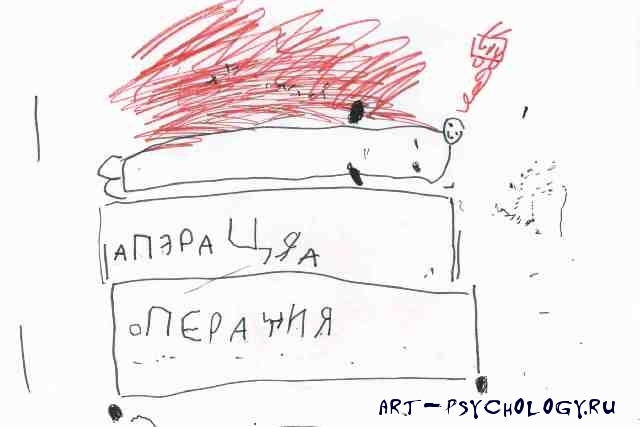 АПЭРАЦЯА
ОПЕРАЦИЯ
ART-PSYCHOLOGY.RU